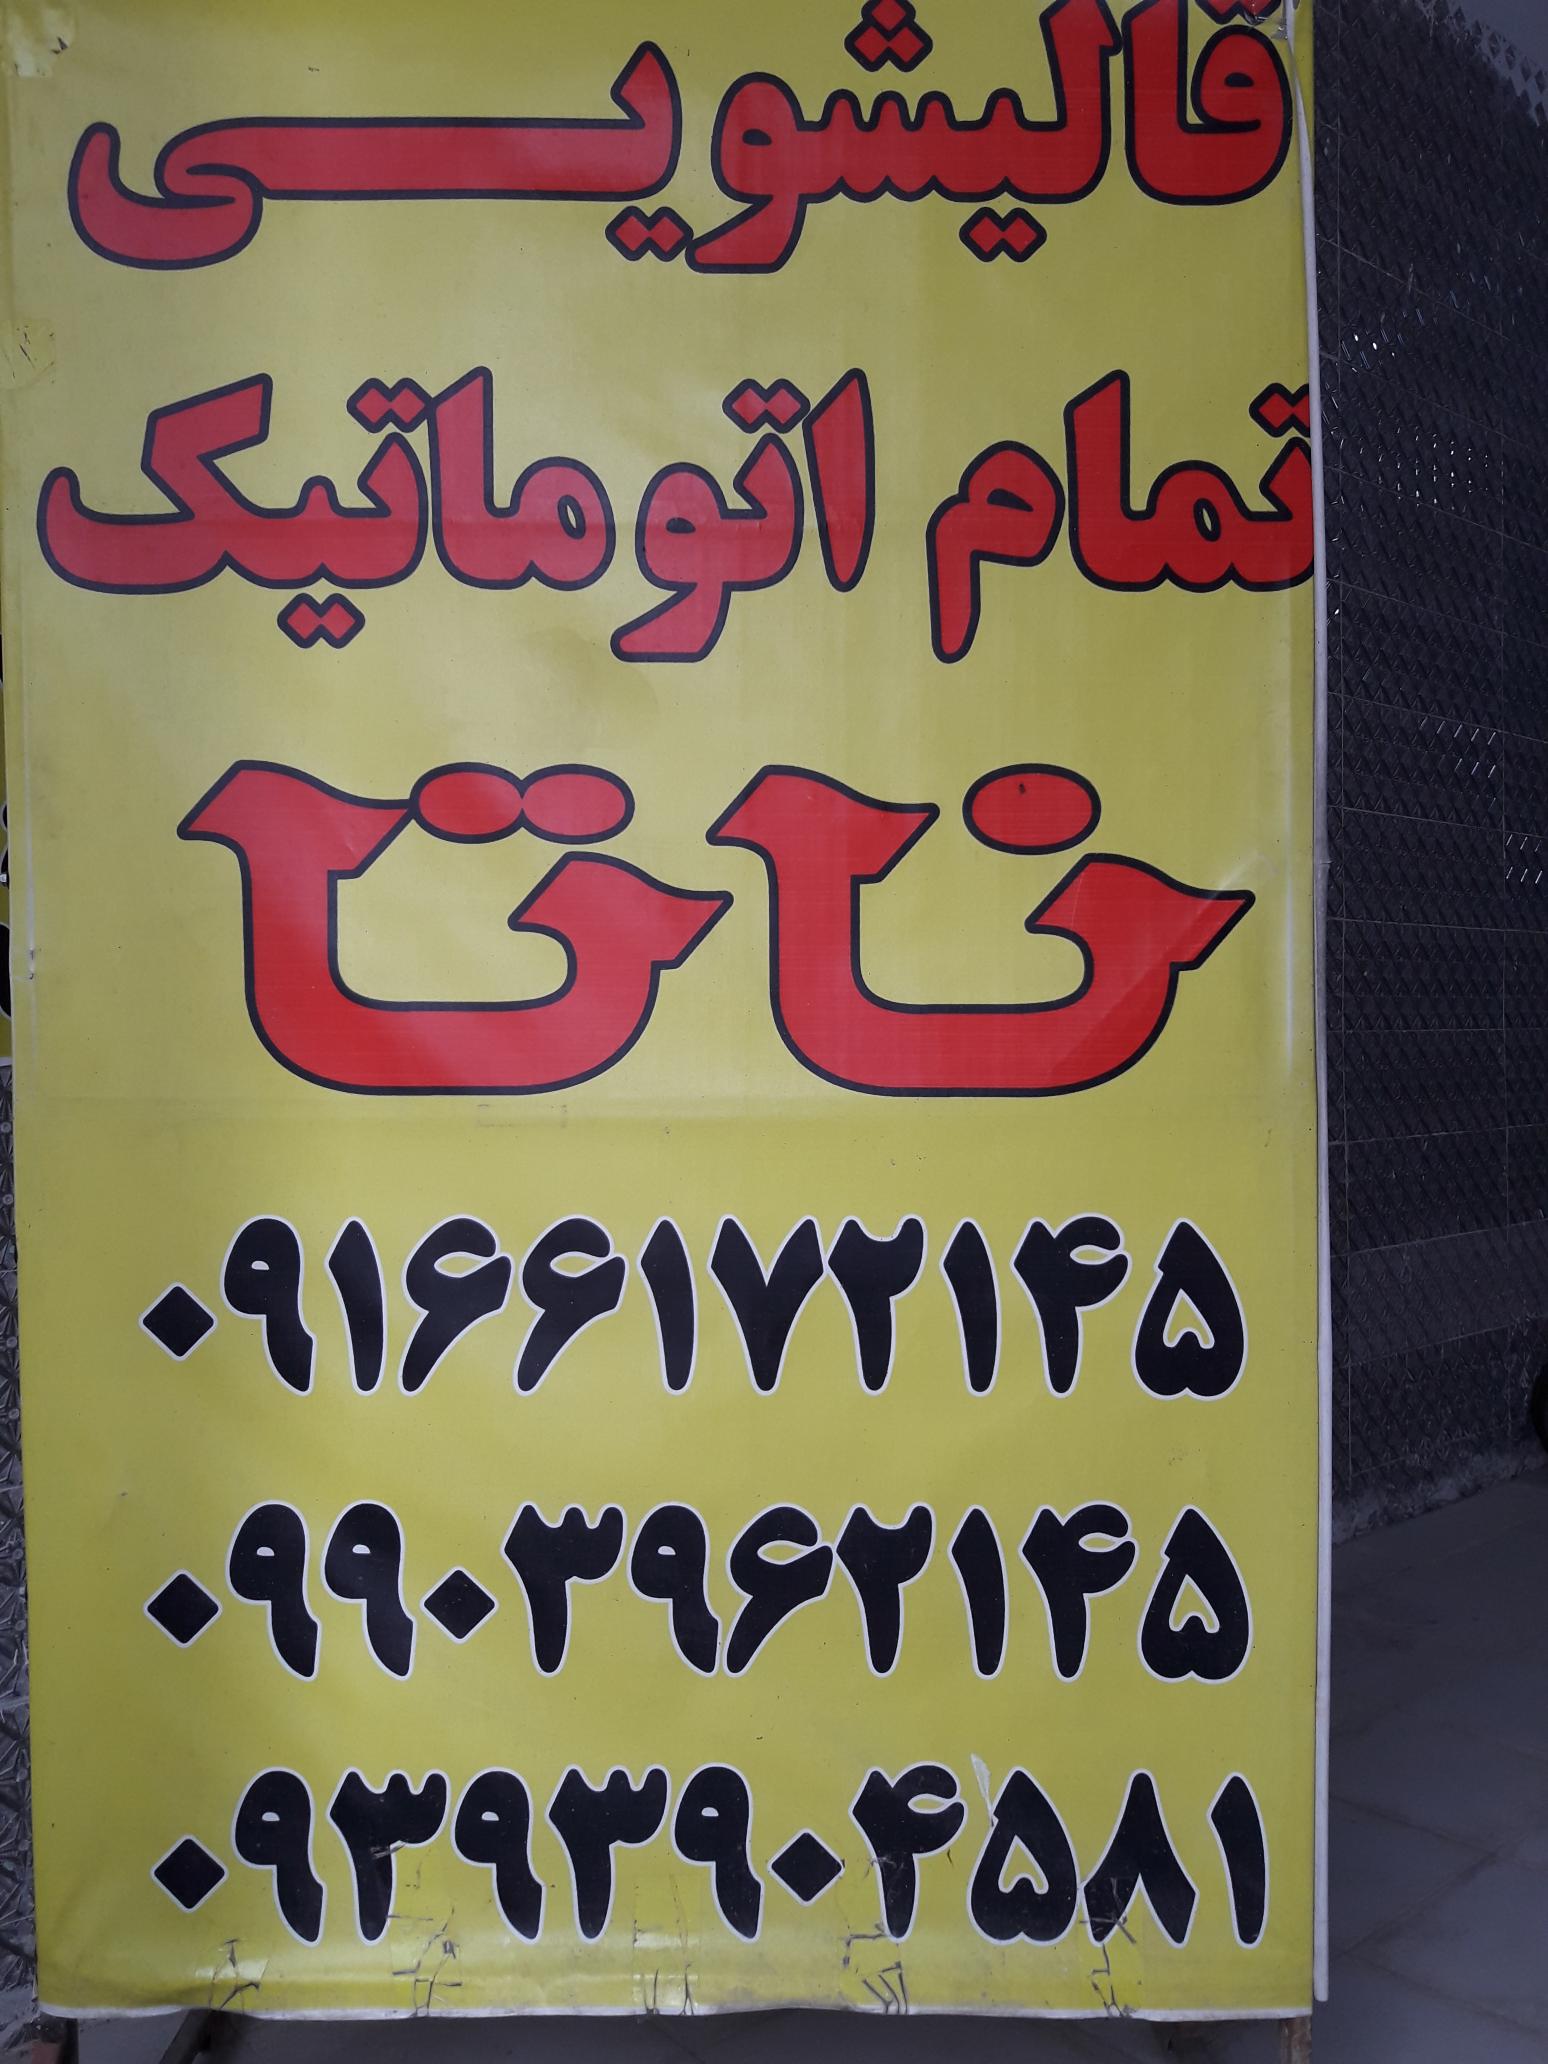 قالیشویی
تمام اتوماتیک
ناتا
۰۹۱۶۶۱۷۲۱۴۵
۰۹۹۰۳۹۶۲۱۴۵
۰۹۳۹۳۹۰۴۵۸۱